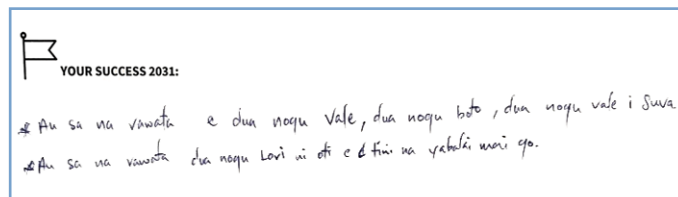 YOUR SUCCESS 2031:
* Au sa na vawata e dua noqu vale, dua noqu boto, dua noqu vale i Suva
* Au sa na vawata dua noqu Lori ni oti e tini na yabaki mai qo.